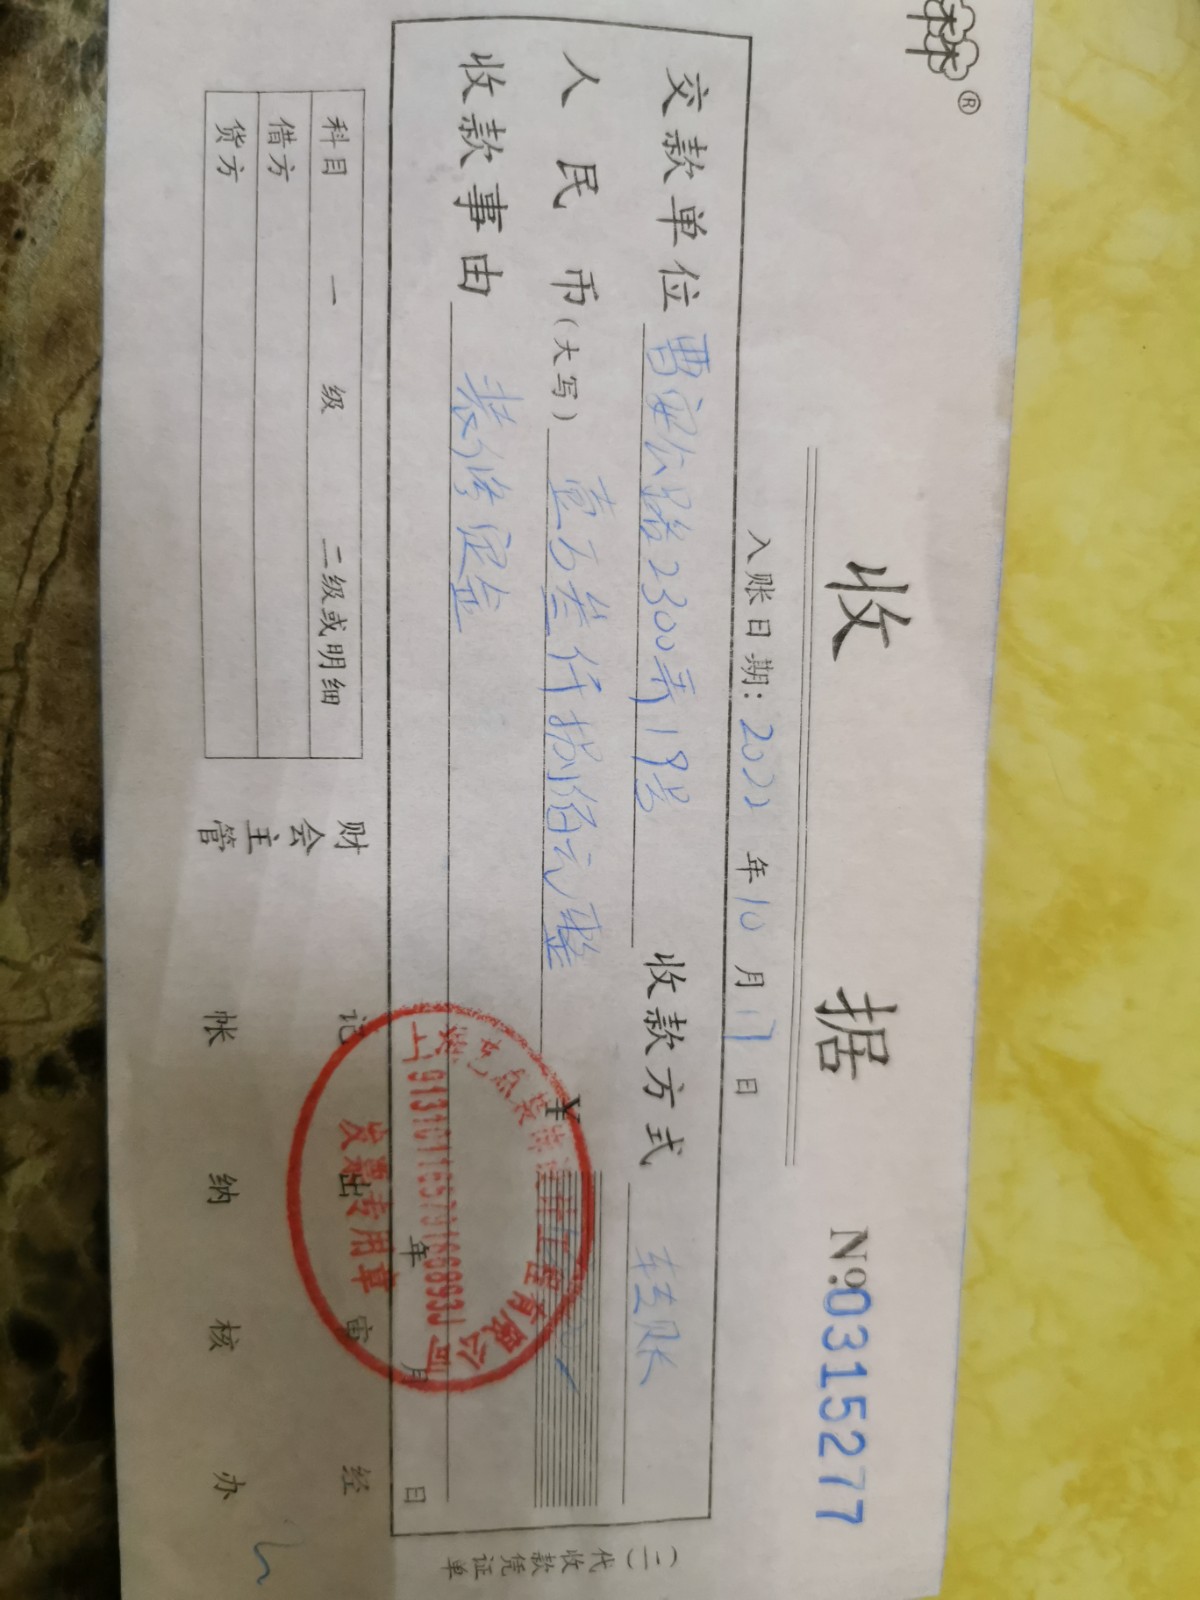 ®
收 据
№ 0315277
入账日期: 2022 年 10 月 17 日
交款单位 曹安公路2300弄19号 收款方式 转账
人民币(大写) 壹万叁仟捌佰元整 ¥
收款事由 装修定金
年 月 日
科目 一级 二级或明细
借方
贷方
财会主管
记帐
出纳
审核
经办
发票专用章
装饰设计工程有限公司
(二)代收款凭证单